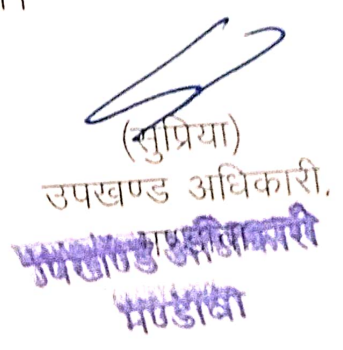 (सुप्रिया)
उपखण्ड अधिकारी,
उपखण्ड अधिकारी
मण्डावा